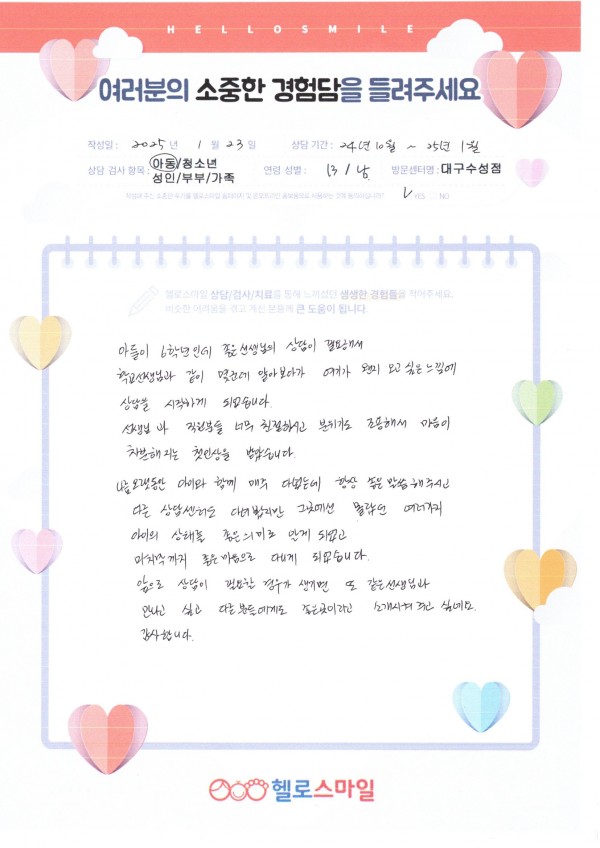 HELLOSMILE
여러분의 소중한 경험담을 들려주세요
작성일 : 2025년 1월 23일 상담 기간 : 24년 10월 ~ 25년 1월
상담 검사 항목 : 아동/청소년 성인/부부/가족 연령 성별 : 13 / 남 방문센터명 : 대구수성점
YES NO
헬로스마일 상담/검사/치료를 통해 느끼셨던 생생한 경험들을 적어주세요.
비슷한 어려움을 겪고 계신 분들께 큰 도움이 됩니다.
아들이 6학년인데 좋은 선생님의 상담이 필요해서
학교선생님과 같이 몇군데 알아보다가 여기가 왠지 오고 싶은 느낌에
상담을 시작하게 되었습니다.
선생님과 직원분들 너무 친절하시고 분위기도 조용해서 마음이
차분해지는 첫인상을 받았습니다.
나름 오랫동안 아이와 함께 매주 다녔는데 항상 좋은 말씀 해주시고
다른 상담센터도 다녀봤지만 그곳에선 몰랐던 여러가지
아이의 상태를 좋은 의미로 알게 되었고
마지막까지 좋은 마음으로 다니게 되었습니다.
앞으로 상담이 필요한 경우가 생기면 또 같은 선생님과
만나고 싶고 다른 분들에게도 좋은곳이라고 소개시켜 주고 싶네요.
감사합니다.
헬로스마일